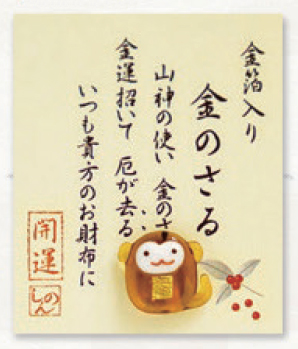 金箔入り
金のさる
山神の使い 金のさ
金運招いて 厄が去る
いつも貴方のお財布に
開運
しんの